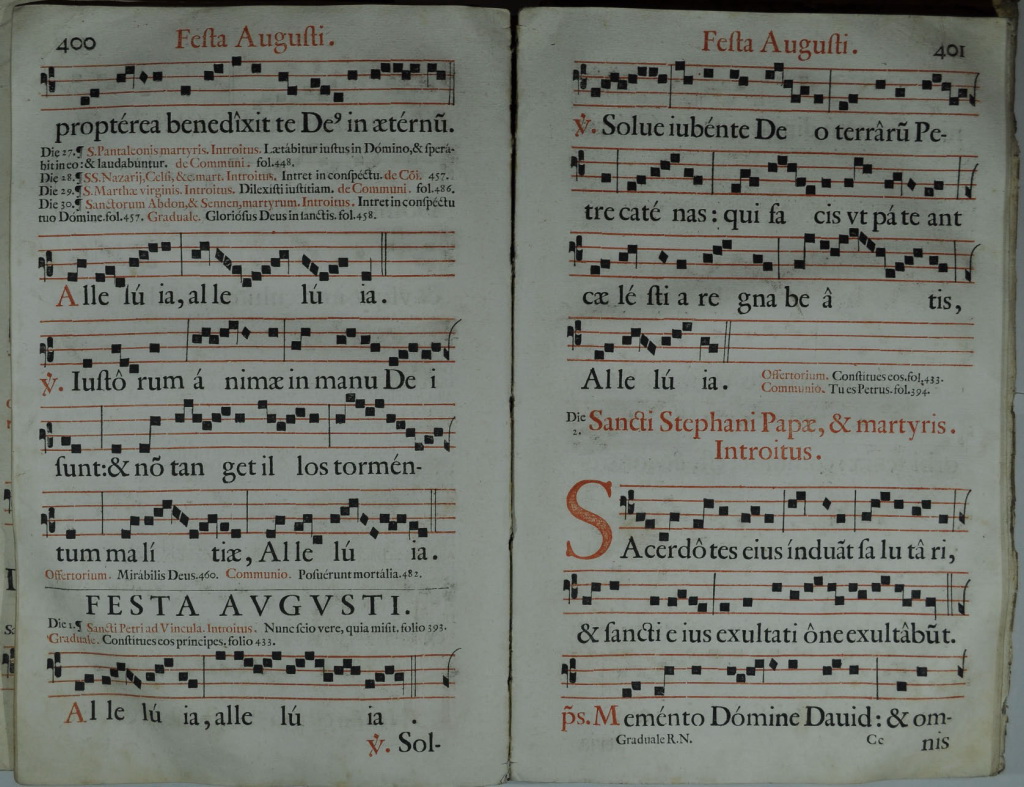 400 Festa Augusti.
proptérea benedîxit te De⁹ in ætérnũ.
Die 27.¶ S.Pantaleonis martyris. Introitus. Lætábitur iustus in Dómino,& sperá-
bit in eo:& laudabúntur. de Communi. fol.448.
Die 28.¶ SS.Nazarij,Celsi,&c.mart. Introitus. Intret in conspéctu.de Cõi. 457.
Die 29.¶ S.Marthæ virginis. Introitus. Dilexísti iustitiam. de Communi. fol.486.
Die 30.¶ Sanctorum Abdon,& Sennen,martyrum. Introitus. Intret in conspéctu
tuo Dómine.fol.457. Graduale. Gloriósus Deus in sanctis.fol.458.
Alle lú ia, al le lú ia.
℣. Iustô rum á nimæ in manu De i
sunt:& nõ tan get il los tormén-
tum ma lí tiæ, Al le lú ia.
Offertorium. Mirábilis Deus.460. Communio. Posuérunt mortália.482.
FESTA AVGVSTI.
Die 1.¶ Sancti Petri ad Vincula. Introitus. Nunc scio vere, quia misit. folio 393.
Graduale. Constitues eos príncipes, folio 433.
Al le lú ia, alle lú ia .
℣. Sol-
Festa Augusti. 401
℣. Solue iubénte De o terrârũ Pe-
tre caté nas: qui fa cis vt pá te ant
cæ lé sti a re gna be â tis,
Al le lú ia.
Offertorium. Constitues eos.fol.433.
Communio. Tu es Petrus.fol.394.
Die 2. Sancti Stephani Papæ, & martyris.
Introitus.
SAcerdô tes eius índuãt sa lu tâ ri,
& sancti e ius exultati ône exultâbũt.
p̃s. Meménto Dómine Dauid: & om-
Graduale R.N. Cc nis